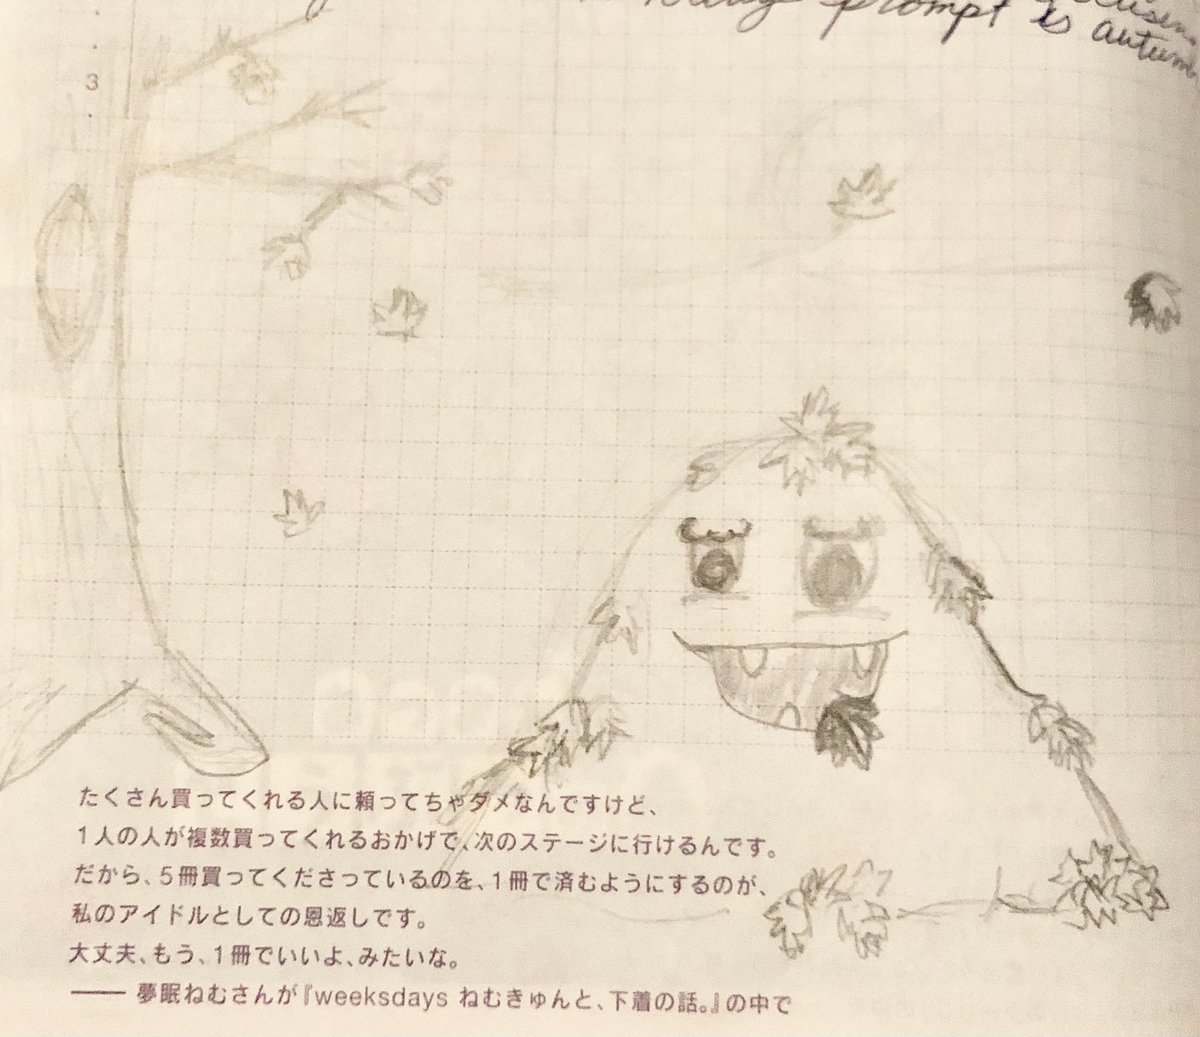 prompt is autumn
3
たくさん買ってくれる人に頼ってちゃダメなんですけど、
1人の人が複数買ってくれるおかげで、次のステージに行けるんです。
だから、5冊買ってくださっているのを、1冊で済むようにするのが、
私のアイドルとしての恩返しです。
大丈夫、もう、1冊でいいよ、みたいな。
── 夢眠ねむさんが『weeksdays ねむきゅんと、下着の話。』の中で